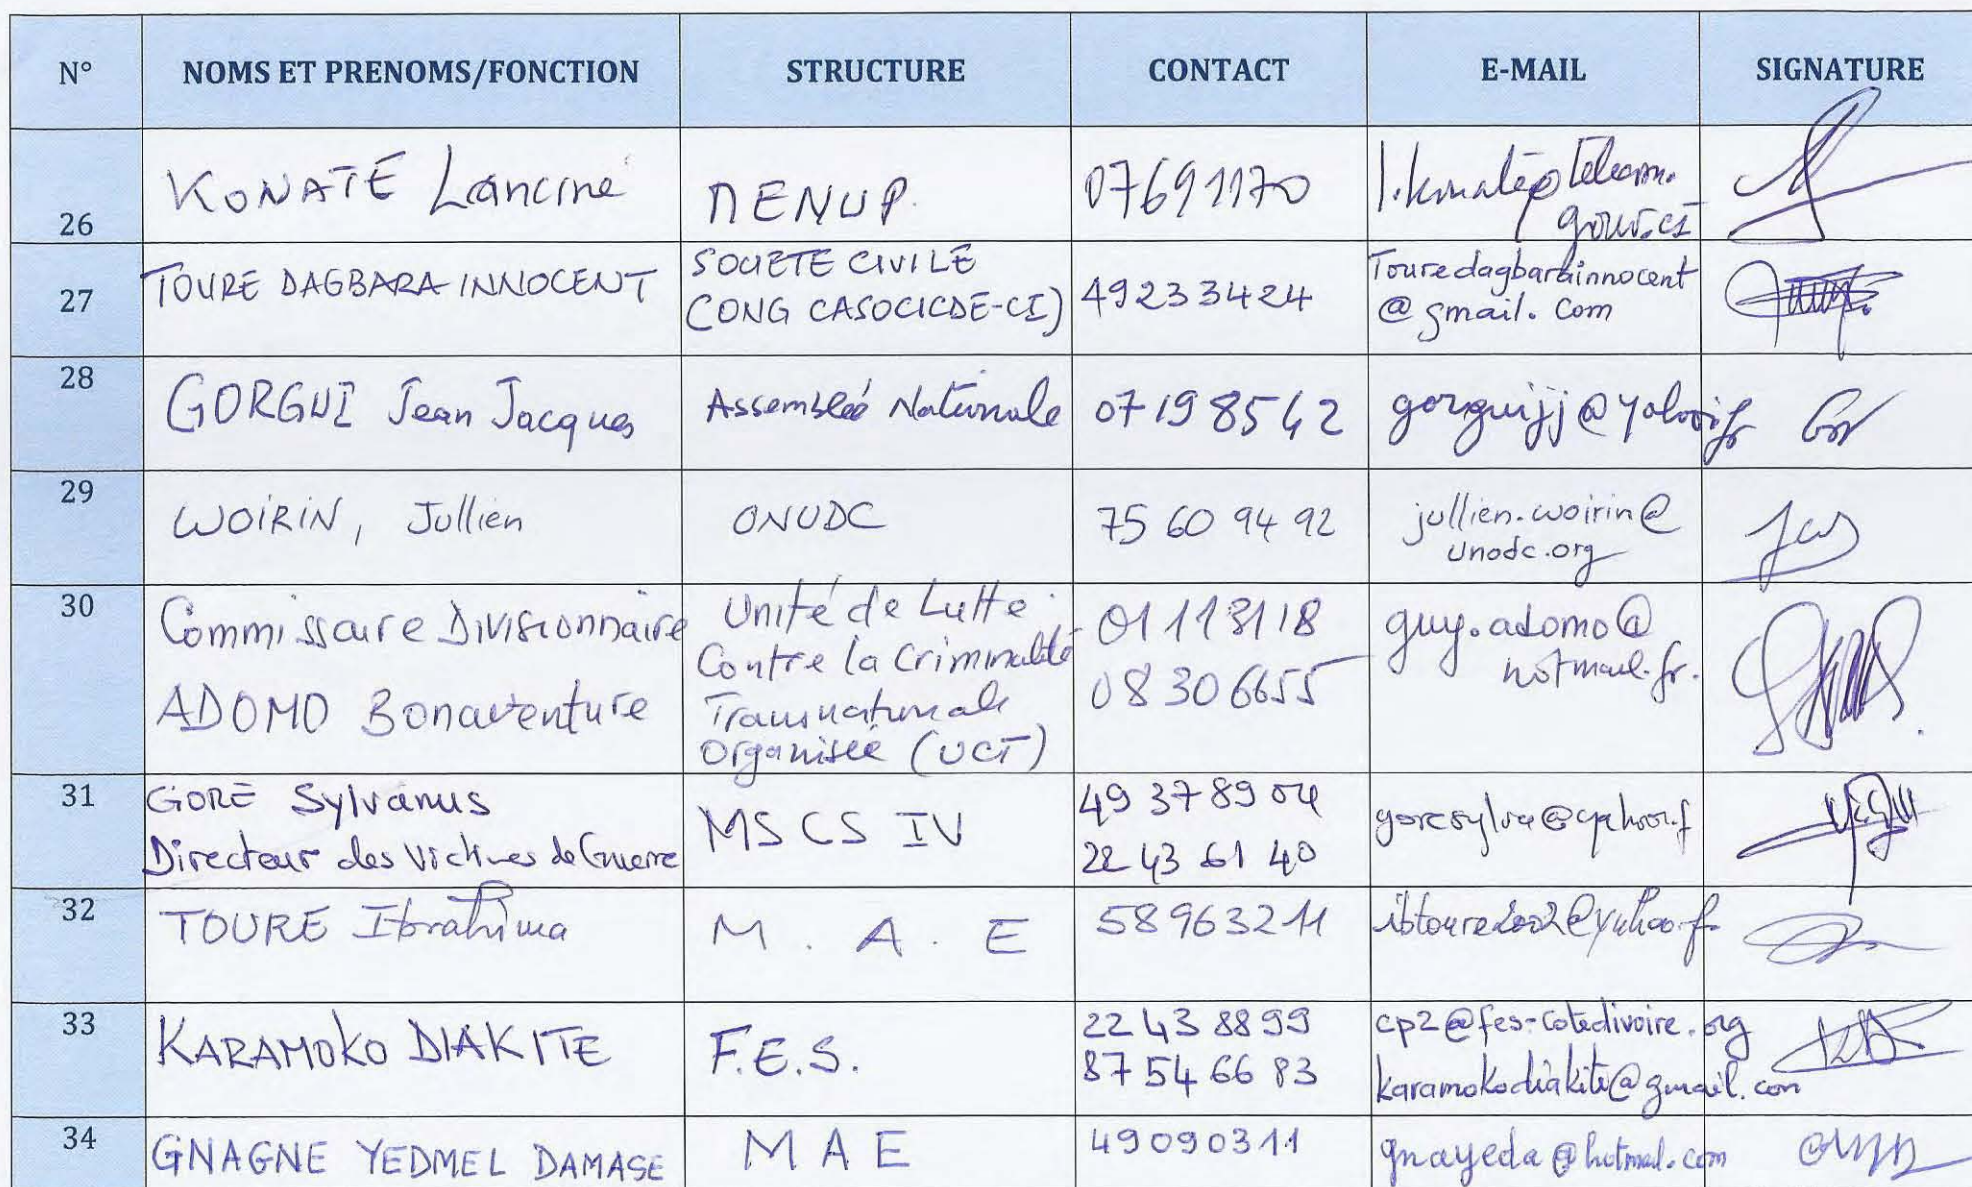 N° NOMS ET PRENOMS/FONCTION STRUCTURE CONTACT E-MAIL SIGNATURE
26 KONATE Lanciné MENUP. 07691170 l.konate@telecom.
gouv.ci
27 TOURE DAGBARA INNOCENT SOCIETE CIVILE
(ONG CASOCICDE-CI) 49233424 Touredagbarainnocent
@gmail.com
28 GORGUI Jean Jacques Assemblée Nationale 07198542 gorguijj@yahoo.fr
29 WOIRIN, Jullien ONUDC 75 60 94 92 jullien.woirin@
unodc.org
30 Commissaire Divisionnaire
ADOMO Bonaventure Unité de Lutte
Contre la Criminalité
Transnationale
Organisée (UCT) 01113118
08306655 guy.adomo@
hotmail.fr.
31 GORE Sylvanus
Directeur des Victimes de Guerre MSCSIV 49 37 89 04
22 43 61 40 goresylva@yahoo.f
32 TOURE Ibrahima M. A. E 58963211 ibtoure2002@yahoo.fr
33 KARAMOKO DIAKITE F.E.S. 22 43 88 99
87 54 66 83 cp2@fes-cotedivoire.org
karamokodiakite@gmail.com
34 GNAGNE YEDMEL DAMASE MAE 49090311 gnayeda@hotmail.com